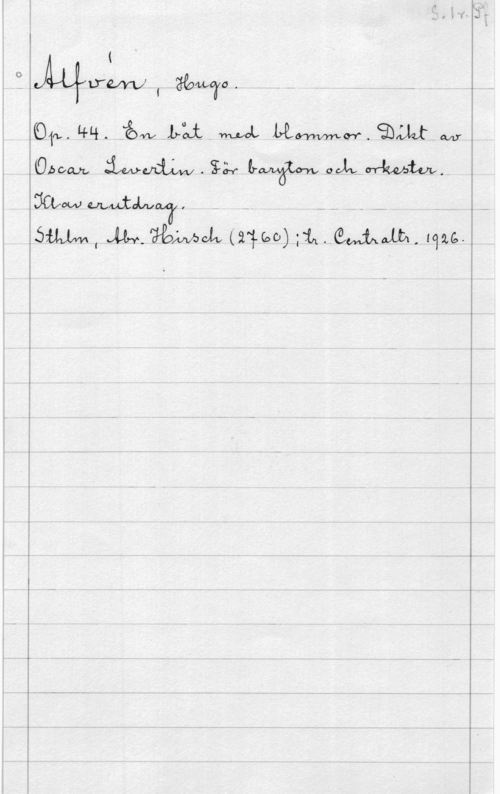 S. 1 v. Pf
Alfvén, Hugo.
Op. 44. En båt med blommor. Dikt av
Oscar Levertin. För baryton och orkester.
Klaverutdrag.
Sthlm, Abr. Hirsch (2760); tr. Centraltr. 1926.